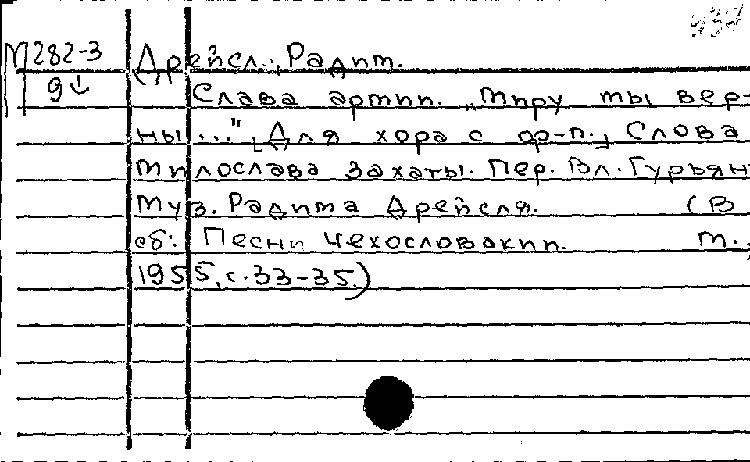 М282-3
9↓
Дрейсл, Радим.
Слава армии. „Миру ты вер-
ны...". [Для хора с ф-п., Слова
Милослава Захаты. Пер. Вл. Гурьян
Муз. Радима Дрейсля. (В
сб: Песни Чехословакии. М.,
1955, с. 33-35.)